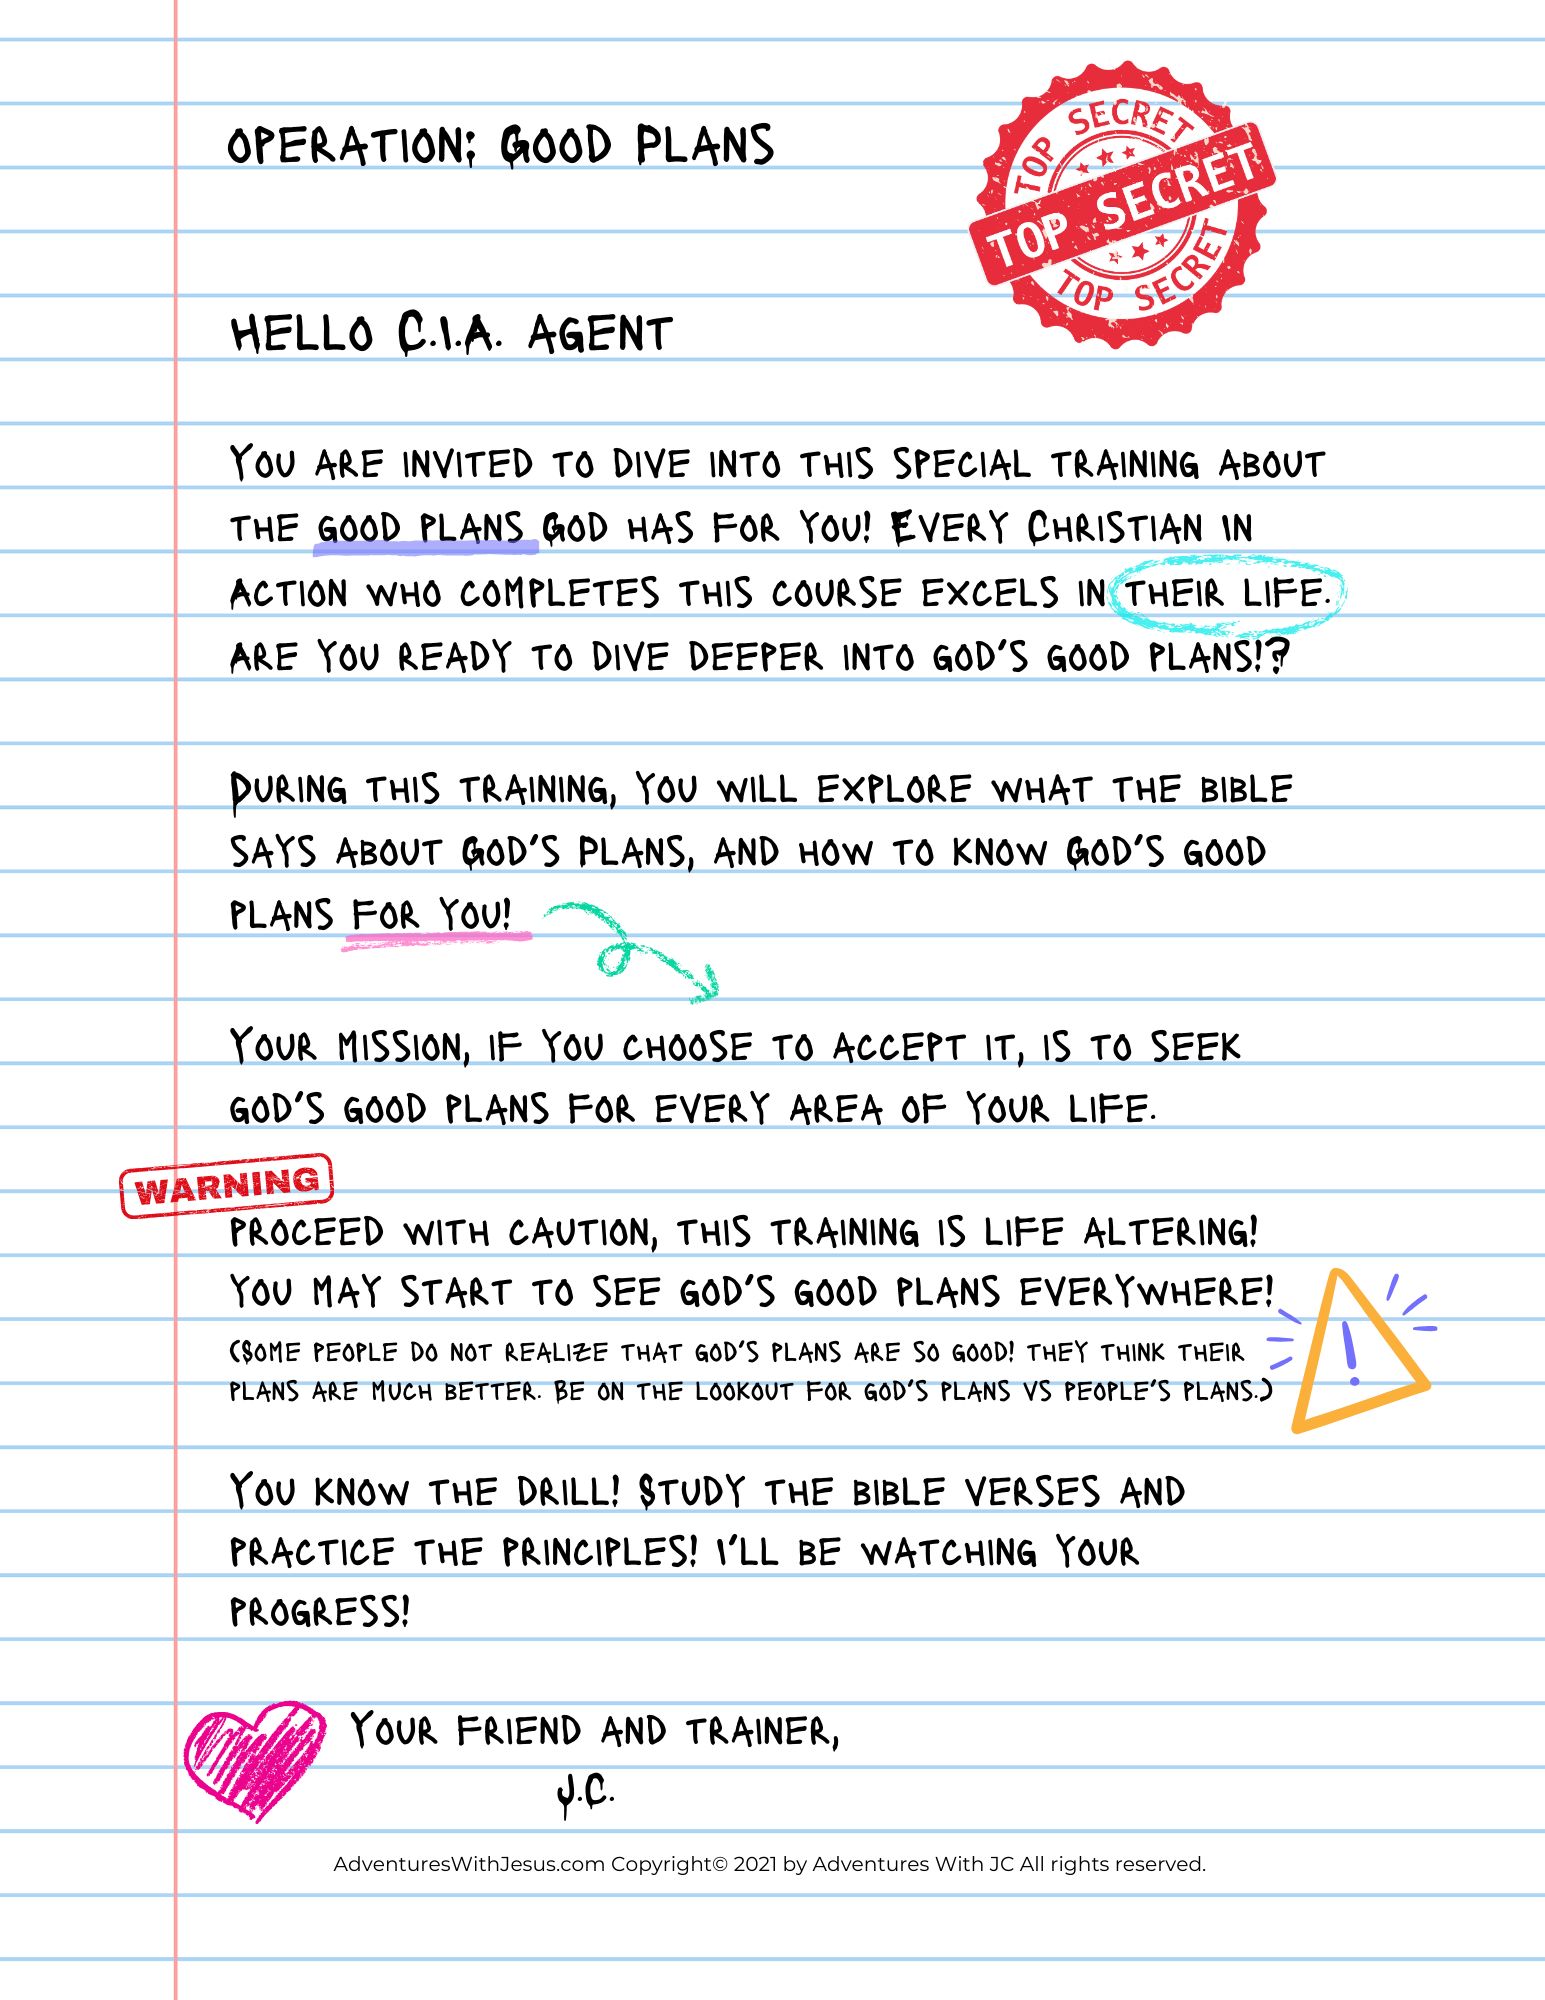 OPERATION: GOOD PLANS
TOP SECRET
TOP SECRET
TOP SECRET
HELLO C.I.A. AGENT
YOU ARE INVITED TO DIVE INTO THIS SPECIAL TRAINING ABOUT
THE GOOD PLANS GOD HAS FOR YOU! EVERY CHRISTIAN IN
ACTION WHO COMPLETES THIS COURSE EXCELS IN THEIR LIFE.
ARE YOU READY TO DIVE DEEPER INTO GOD'S GOOD PLANS!?
DURING THIS TRAINING, YOU WILL EXPLORE WHAT THE BIBLE
SAYS ABOUT GOD'S PLANS, AND HOW TO KNOW GOD'S GOOD
PLANS FOR YOU!
YOUR MISSION, IF YOU CHOOSE TO ACCEPT IT, IS TO SEEK
GOD'S GOOD PLANS FOR EVERY AREA OF YOUR LIFE.
WARNING
PROCEED WITH CAUTION, THIS TRAINING IS LIFE ALTERING!
YOU MAY START TO SEE GOD'S GOOD PLANS EVERYWHERE!
(SOME PEOPLE DO NOT REALIZE THAT GOD'S PLANS ARE SO GOOD! THEY THINK THEIR
PLANS ARE MUCH BETTER. BE ON THE LOOKOUT FOR GOD'S PLANS VS PEOPLE'S PLANS.)
YOU KNOW THE DRILL! STUDY THE BIBLE VERSES AND
PRACTICE THE PRINCIPLES! I'LL BE WATCHING YOUR
PROGRESS!
YOUR FRIEND AND TRAINER,
J.C.
AdventuresWithJesus.com Copyright© 2021 by Adventures With JC All rights reserved.